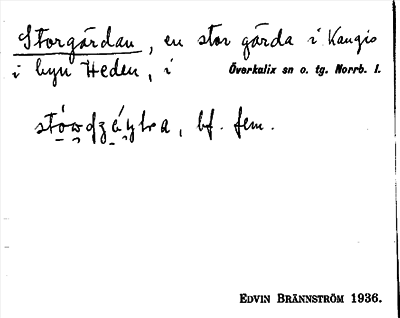 Storgärdan, en stor gärda i Kangis
i byn Heden, i Överkalix sn o. tg. Norrb. l.
bf. fem.
EDVIN BRÄNNSTRÖM 1936.